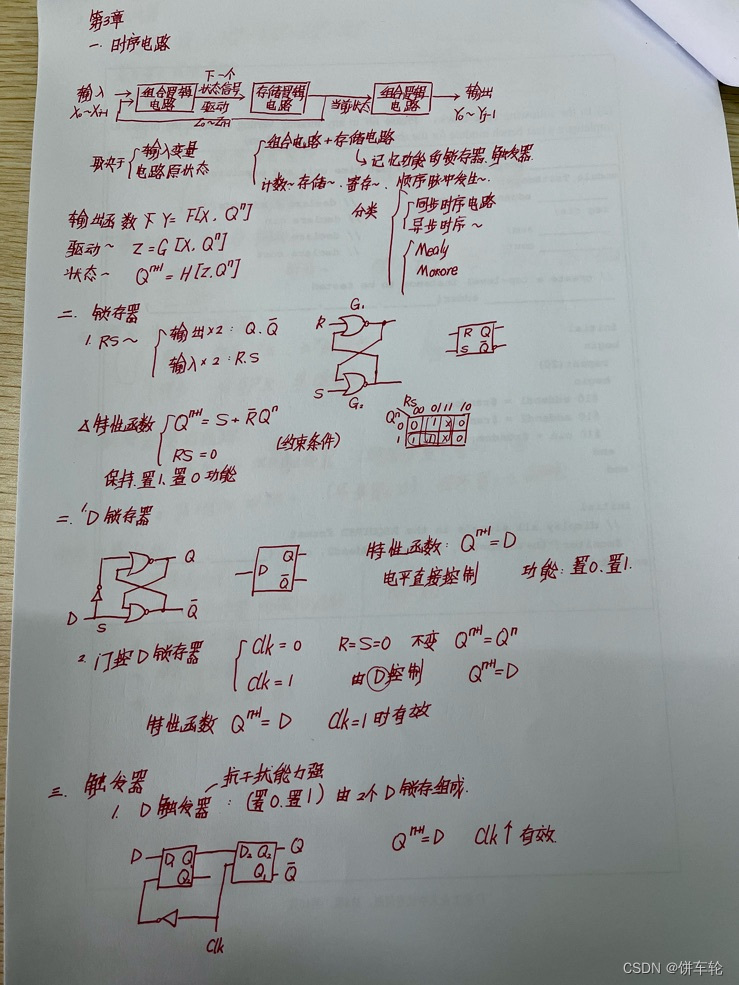 第3章
一.时序电路
输入 X₀~Xᵢ₋₁ 组合逻辑电路 下一个状态信号 驱动 Z₀~Zₙ₋₁ 存储逻辑电路 当前状态 组合逻辑电路 输出 Y₀~Yⱼ₋₁
取决于 { 输入变量 电路原状态
{ 组合电路+存储电路
记忆功能的锁存器.触发器.
计数~存储~.寄存~.顺序脉冲发生~.
分类 { 同步时序电路 异步时序~
{ Mealy
输出函数 Y=F[X,Qⁿ]
驱动~ Z=G[X,Qⁿ]
状态~ Qⁿ⁺¹=H[Z,Qⁿ]
二.锁存器
1.RS~ { 输出×2:Q.Q̅
输入×2:R.S
R G₁
S G₂
R Q
S Q̅
△特性函数 { Qⁿ⁺¹=S+R̅Qⁿ
RS=0 (约束条件)
RS 00 01 11 10
Qⁿ 0 0 1 X 0
1 1 1 X 0
保持.置1、置0功能
二.1.D锁存器
D S Q Q̅
D Q Q̅
特性函数:Qⁿ⁺¹=D
电平直接控制 功能:置0.置1.
2.门控D锁存器 { Clk=0 R=S=0 不变 Qⁿ⁺¹=Qⁿ
Clk=1 由D控制 Qⁿ⁺¹=D
特性函数 Qⁿ⁺¹=D Clk=1时有效
三.触发器
抗干扰能力强
1.D触发器:(置0.置1)由2个D锁存组成.
D D₁ Q₁ D₂ Q₂ Q
Q̅
Clk
Qⁿ⁺¹=D Clk↑有效
CSDN @饼车轮